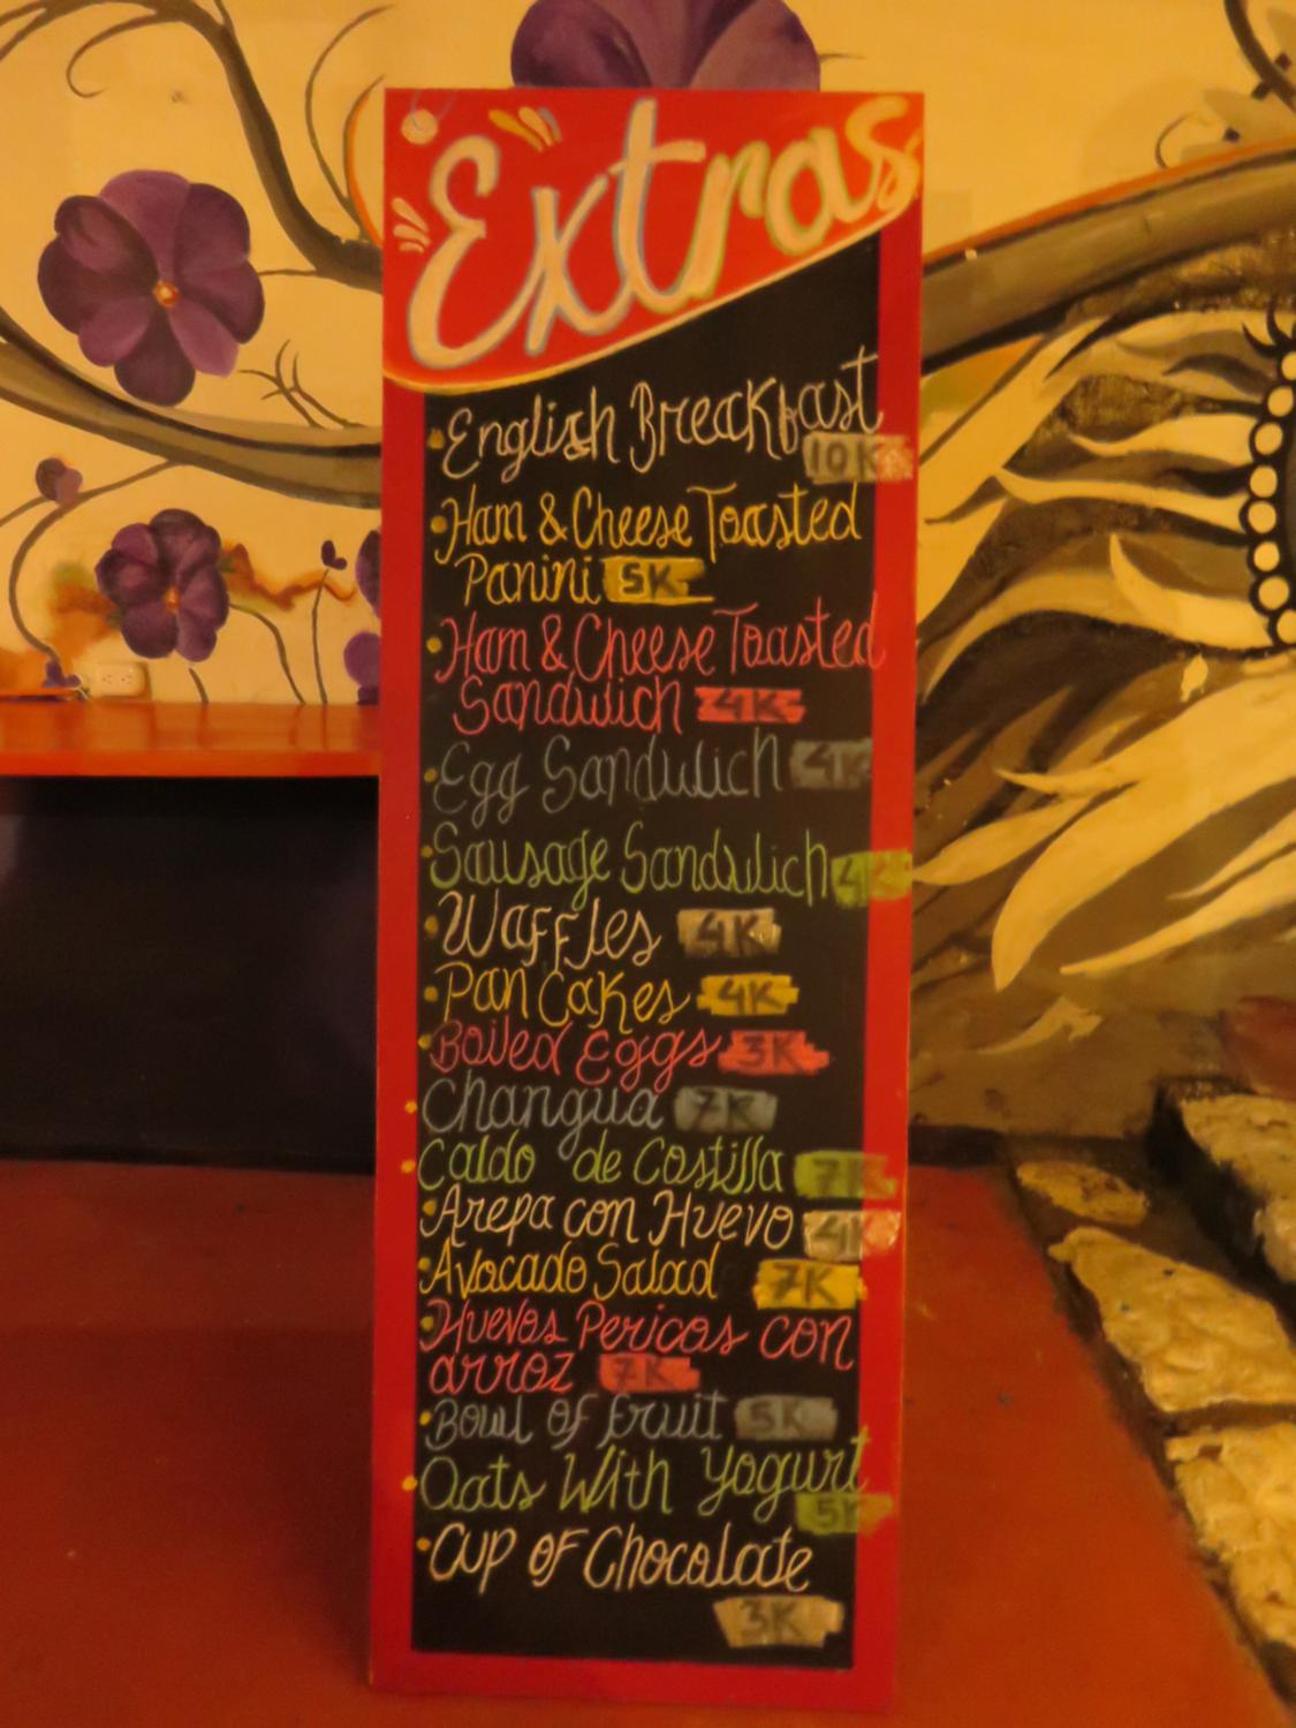 Extras
English Breakfast
10K
Ham & Cheese Toasted
Panini 5K
Ham & Cheese Toasted
Sandwich 4K
Egg Sandwich 4K
Sausage Sandwich 4K
Waffles 4K
Pan Cakes 4K
Boiled Eggs 3K
Changua 7K
Caldo de Costilla 7K
Arepa con Huevo 4K
Avocado Salad 7K
Huevos Pericos con
arroz 7K
Bowl of fruit 5K
Oats With Yogurt
5K
Cup of Chocolate
3K